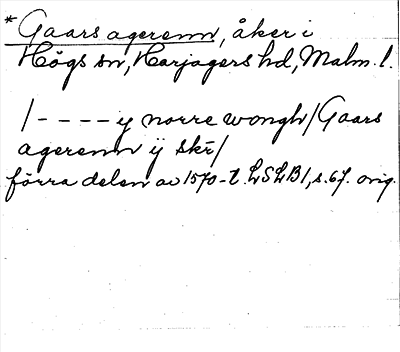 * Gaars agerenn, åker i
Högs sn, Harjagers hd, Malm. l.
/- - - - y norre wongh/Gaars
agerenn ij skr̄/
förra delen av 1570-t. LSLB1, s. 67. orig.